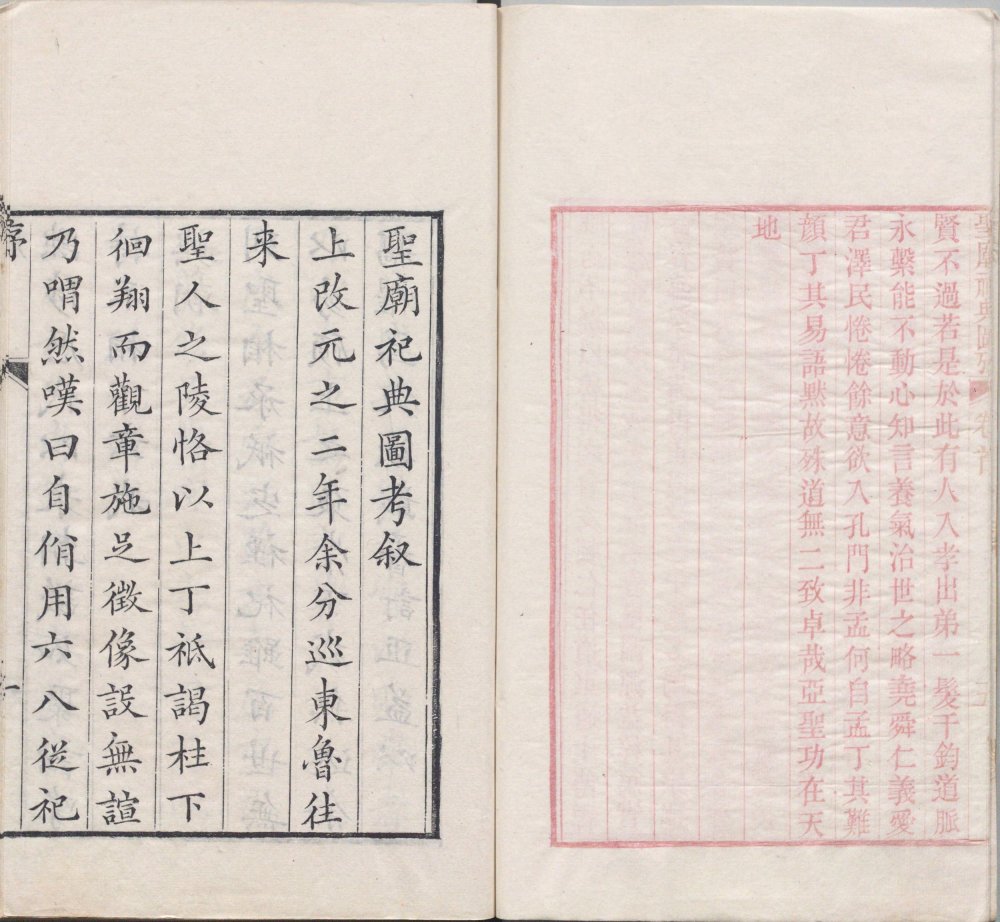 聖廟祀典圖考 卷首
賢不過若是於此有人入孝出弟一髮千鈞道脈
永繫能不動心知言養氣治世之略堯舜仁義愛
君澤民惓惓餘意欲入孔門非孟何自孟丁其難
顔丁其易語默故殊道無二致卓哉亞聖功在天
地
聖廟祀典圖考叙
上改元之二年余分巡東魯往
来
聖人之陵恪以上丁祗謁柱下
徊翔而觀章施足徵像設無諠
乃喟然嘆曰自俏用六八從祀
序
一